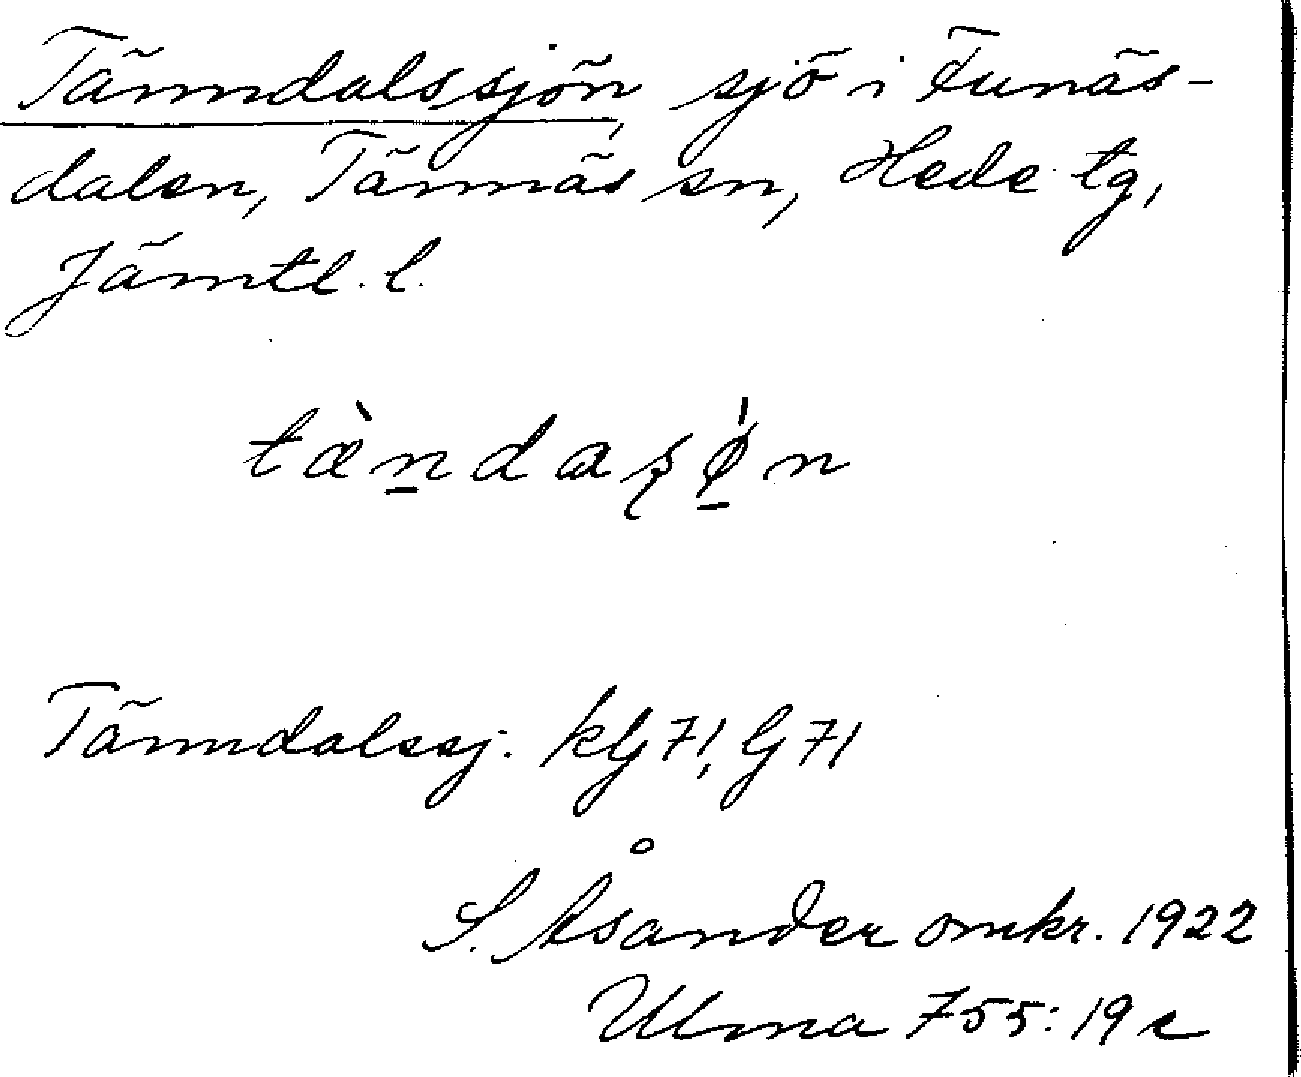 Tänndalssjön, sjö i Funäs-
dalen, Tännäs sn, Hede tg,
Jämtl. l.
tæ̀n̠daʂǿ̠n
Tänndalssj. kG71, G71
S. Åsander omkr. 1922
Ulma 755: 19 c